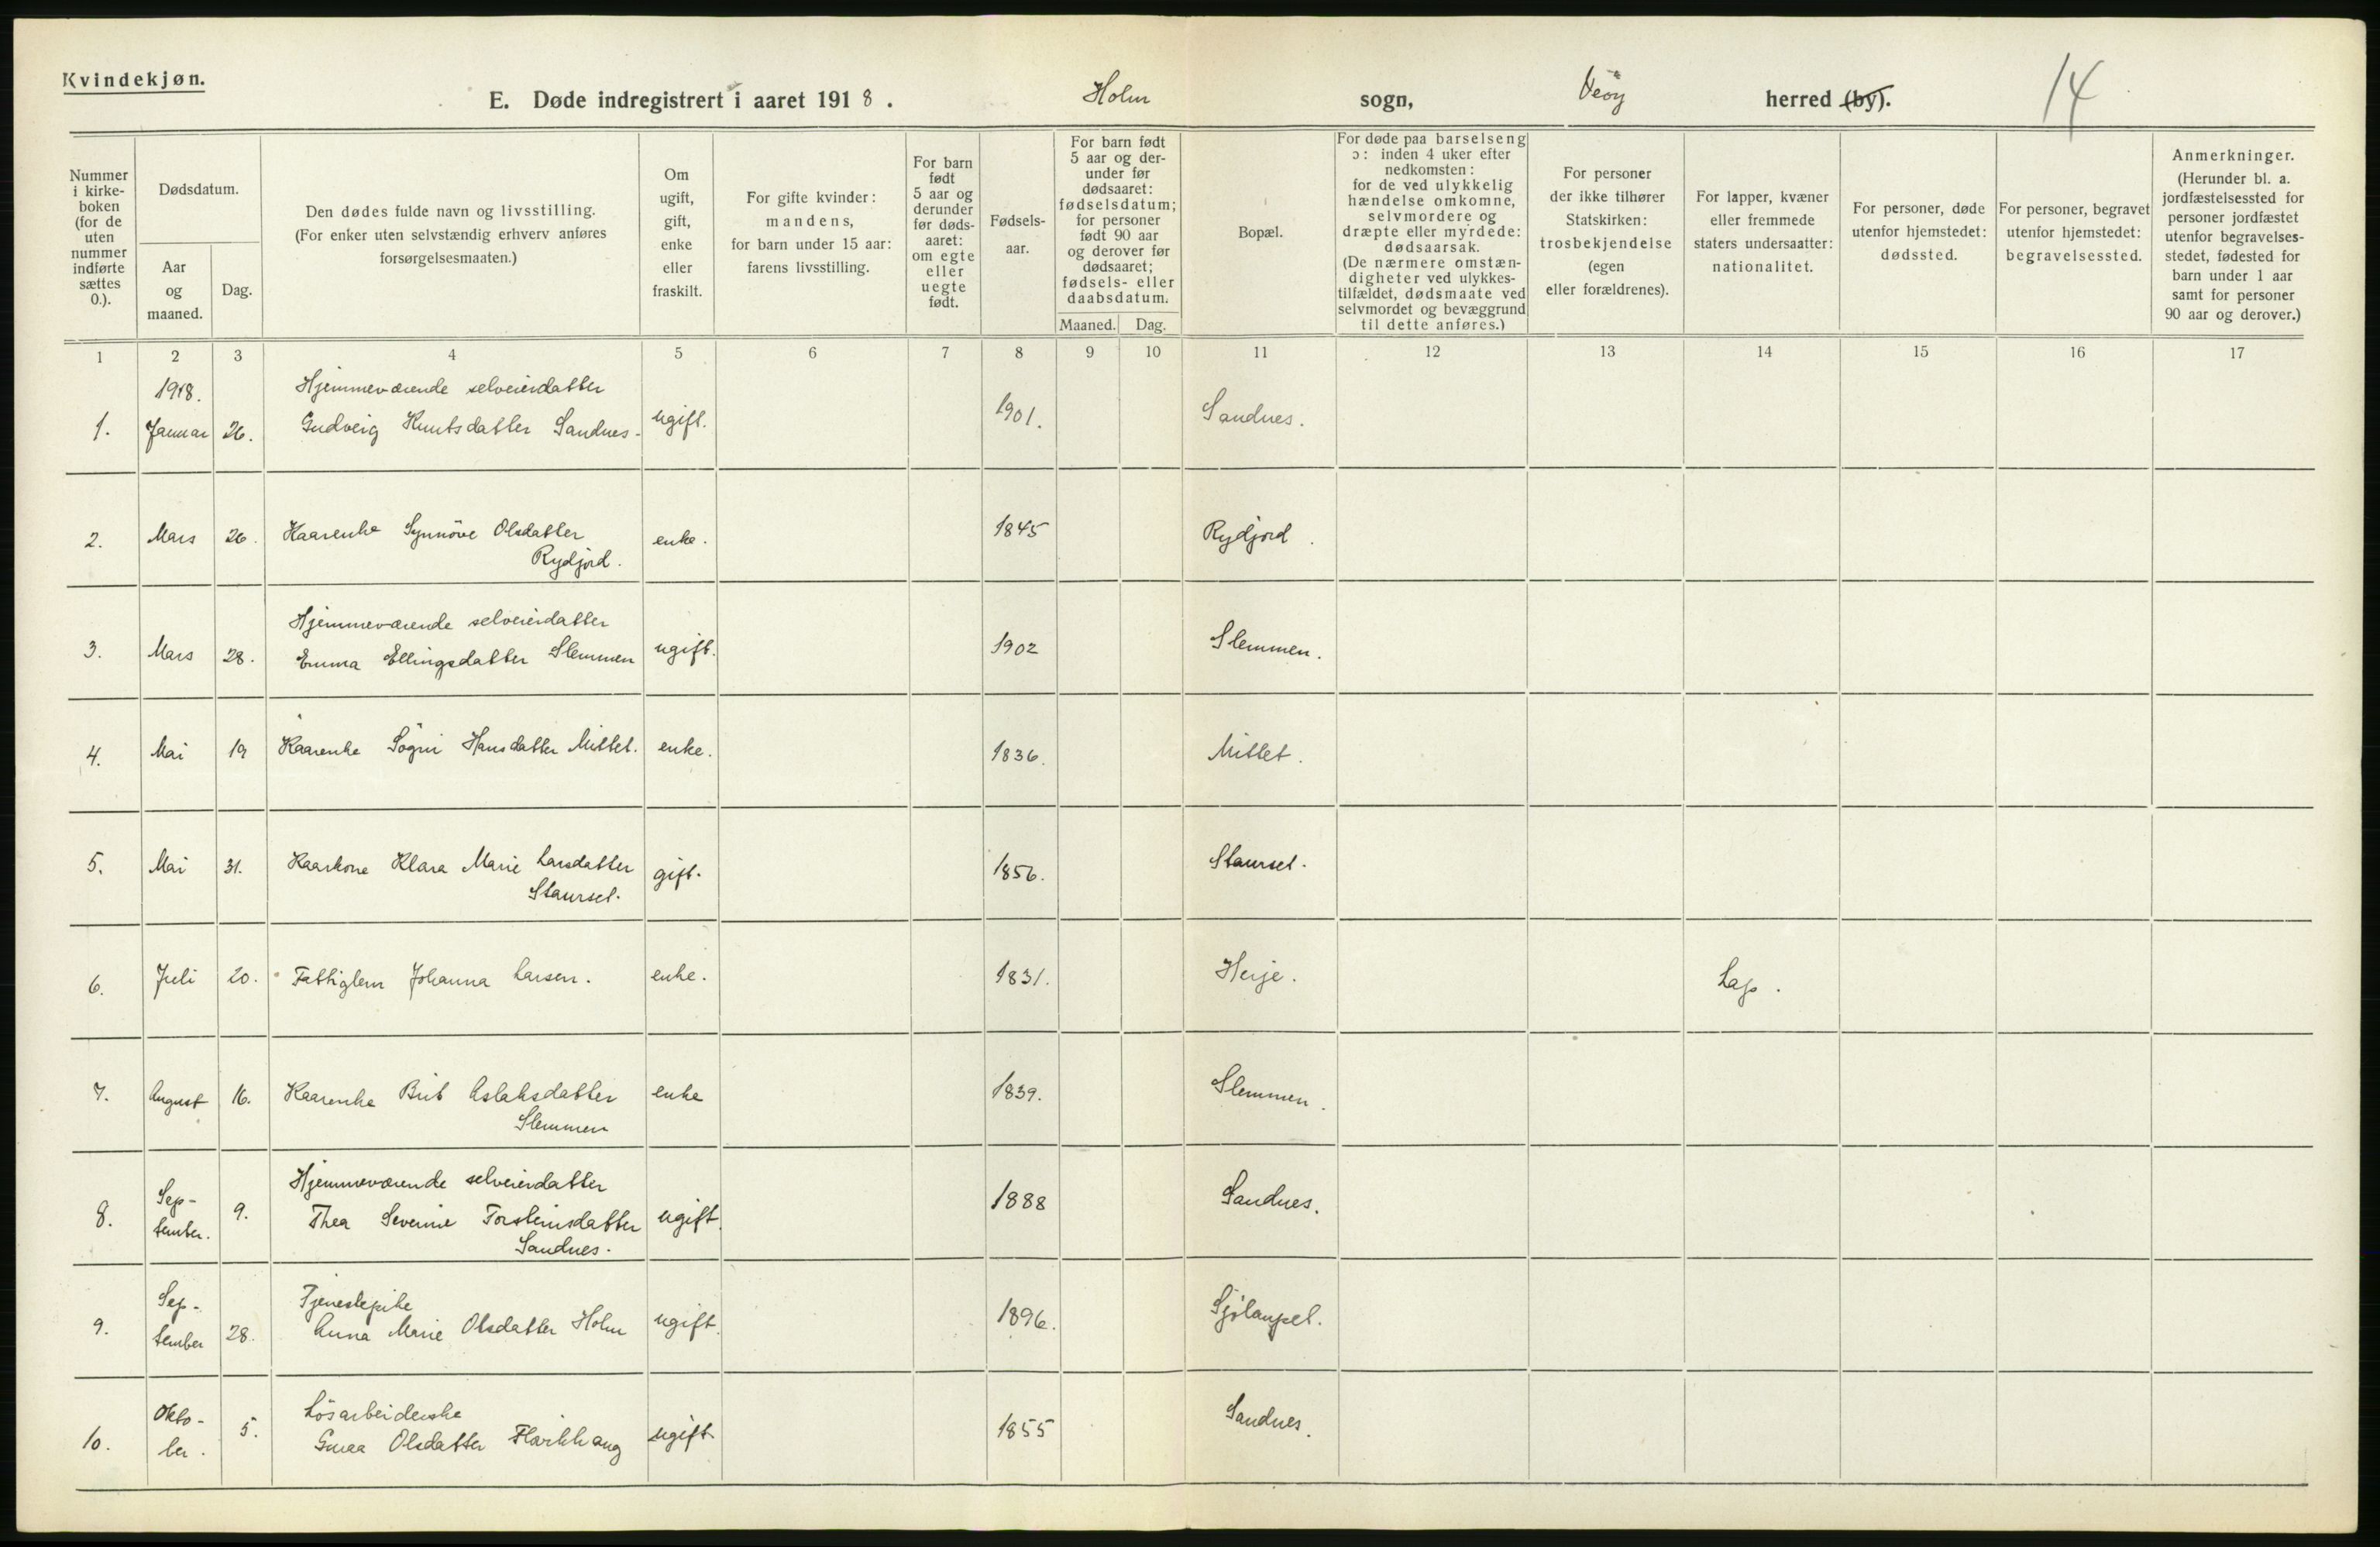 Kvindekjøn.
E. Døde indregistrert i aaret 1918. Holm sogn, Veøy herred (by). 14
Nummer i kirkeboken (for de uten nummer indførte sættes 0.).
Dødsdatum.
Aar og maaned.
Dag.
Den dødes fulde navn og livsstilling.
(For enker uten selvstændig erhverv anføres forsørgelsesmaaten.)
Om ugift, gift, enke eller fraskilt.
For gifte kvinder: mandens, for barn under 15 aar: farens livsstilling.
For barn født 5 aar og derunder før dødsaaret: om egte eller uegte født.
Fødselsaar.
For barn født 5 aar og derunder før dødsaaret: fødselsdatum; for personer født 90 aar og derover før dødsaaret; fødsels- eller daabsdatum.
Maaned. Dag.
Bopæl.
For døde paa barselseng ɔ: inden 4 uker efter nedkomsten: for de ved ulykkelig hændelse omkomne, selvmordere og dræpte eller myrdede: dødsaarsak. (De nærmere omstændigheter ved ulykkestilfældet, dødsmaate ved selvmordet og bevæggrund til dette anføres.)
For personer der ikke tilhører Statskirken: trosbekjendelse (egen eller forældrenes).
For lapper, kvæner eller fremmede staters undersaatter: nationalitet.
For personer, døde utenfor hjemstedet: dødssted.
For personer, begravet utenfor hjemstedet: begravelsessted.
Anmerkninger. (Herunder bl. a. jordfæstelsessted for personer jordfæstet utenfor begravelsesstedet, fødested for barn under 1 aar samt for personer 90 aar og derover.)
1 2 3 4 5 6 7 8 9 10 11 12 13 14 15 16 17
1918. Hjemmeværende selveierdatter
1. Januar 26. Gudveig Knutsdatter Sandnes. ugift. 1901. Sandnes.
2. Mars 26. Kaarenke Synnöve Olsdatter enke. 1845 Rydjord.
Rydjord.
Hjemmeværende selveierdatter
3. Mars 28. Emma Ellingsdatter Slemmen ugift. 1902 Slemmen.
4. Mai 19 Kaarenke Sögni Hansdatter Mittet. enke. 1836. Mittet.
5. Mai 31. Kaarkone Klara Marie Larsdatter gift. 1856. Staurset.
Staurset.
6. Juli 20. Fattiglem Johanna Larsen. enke. 1831. Herje. Lap.
7. August 16. Kaarenke Brit Aslaksdatter enke 1839. Slemmen.
Slemmen
Hjemmeværende selveierdatter
8. September. 9. Thea Severine Torsteinsdatter ugift. 1888 Sandnes.
Sandnes.
Tjenestepike
9. September 28. Anna Marie Olsdatter Holm ugift. 1896.
Lösarbeiderske
10. Oktober. 5. Olsdatter ugift 1855 Sandnes.